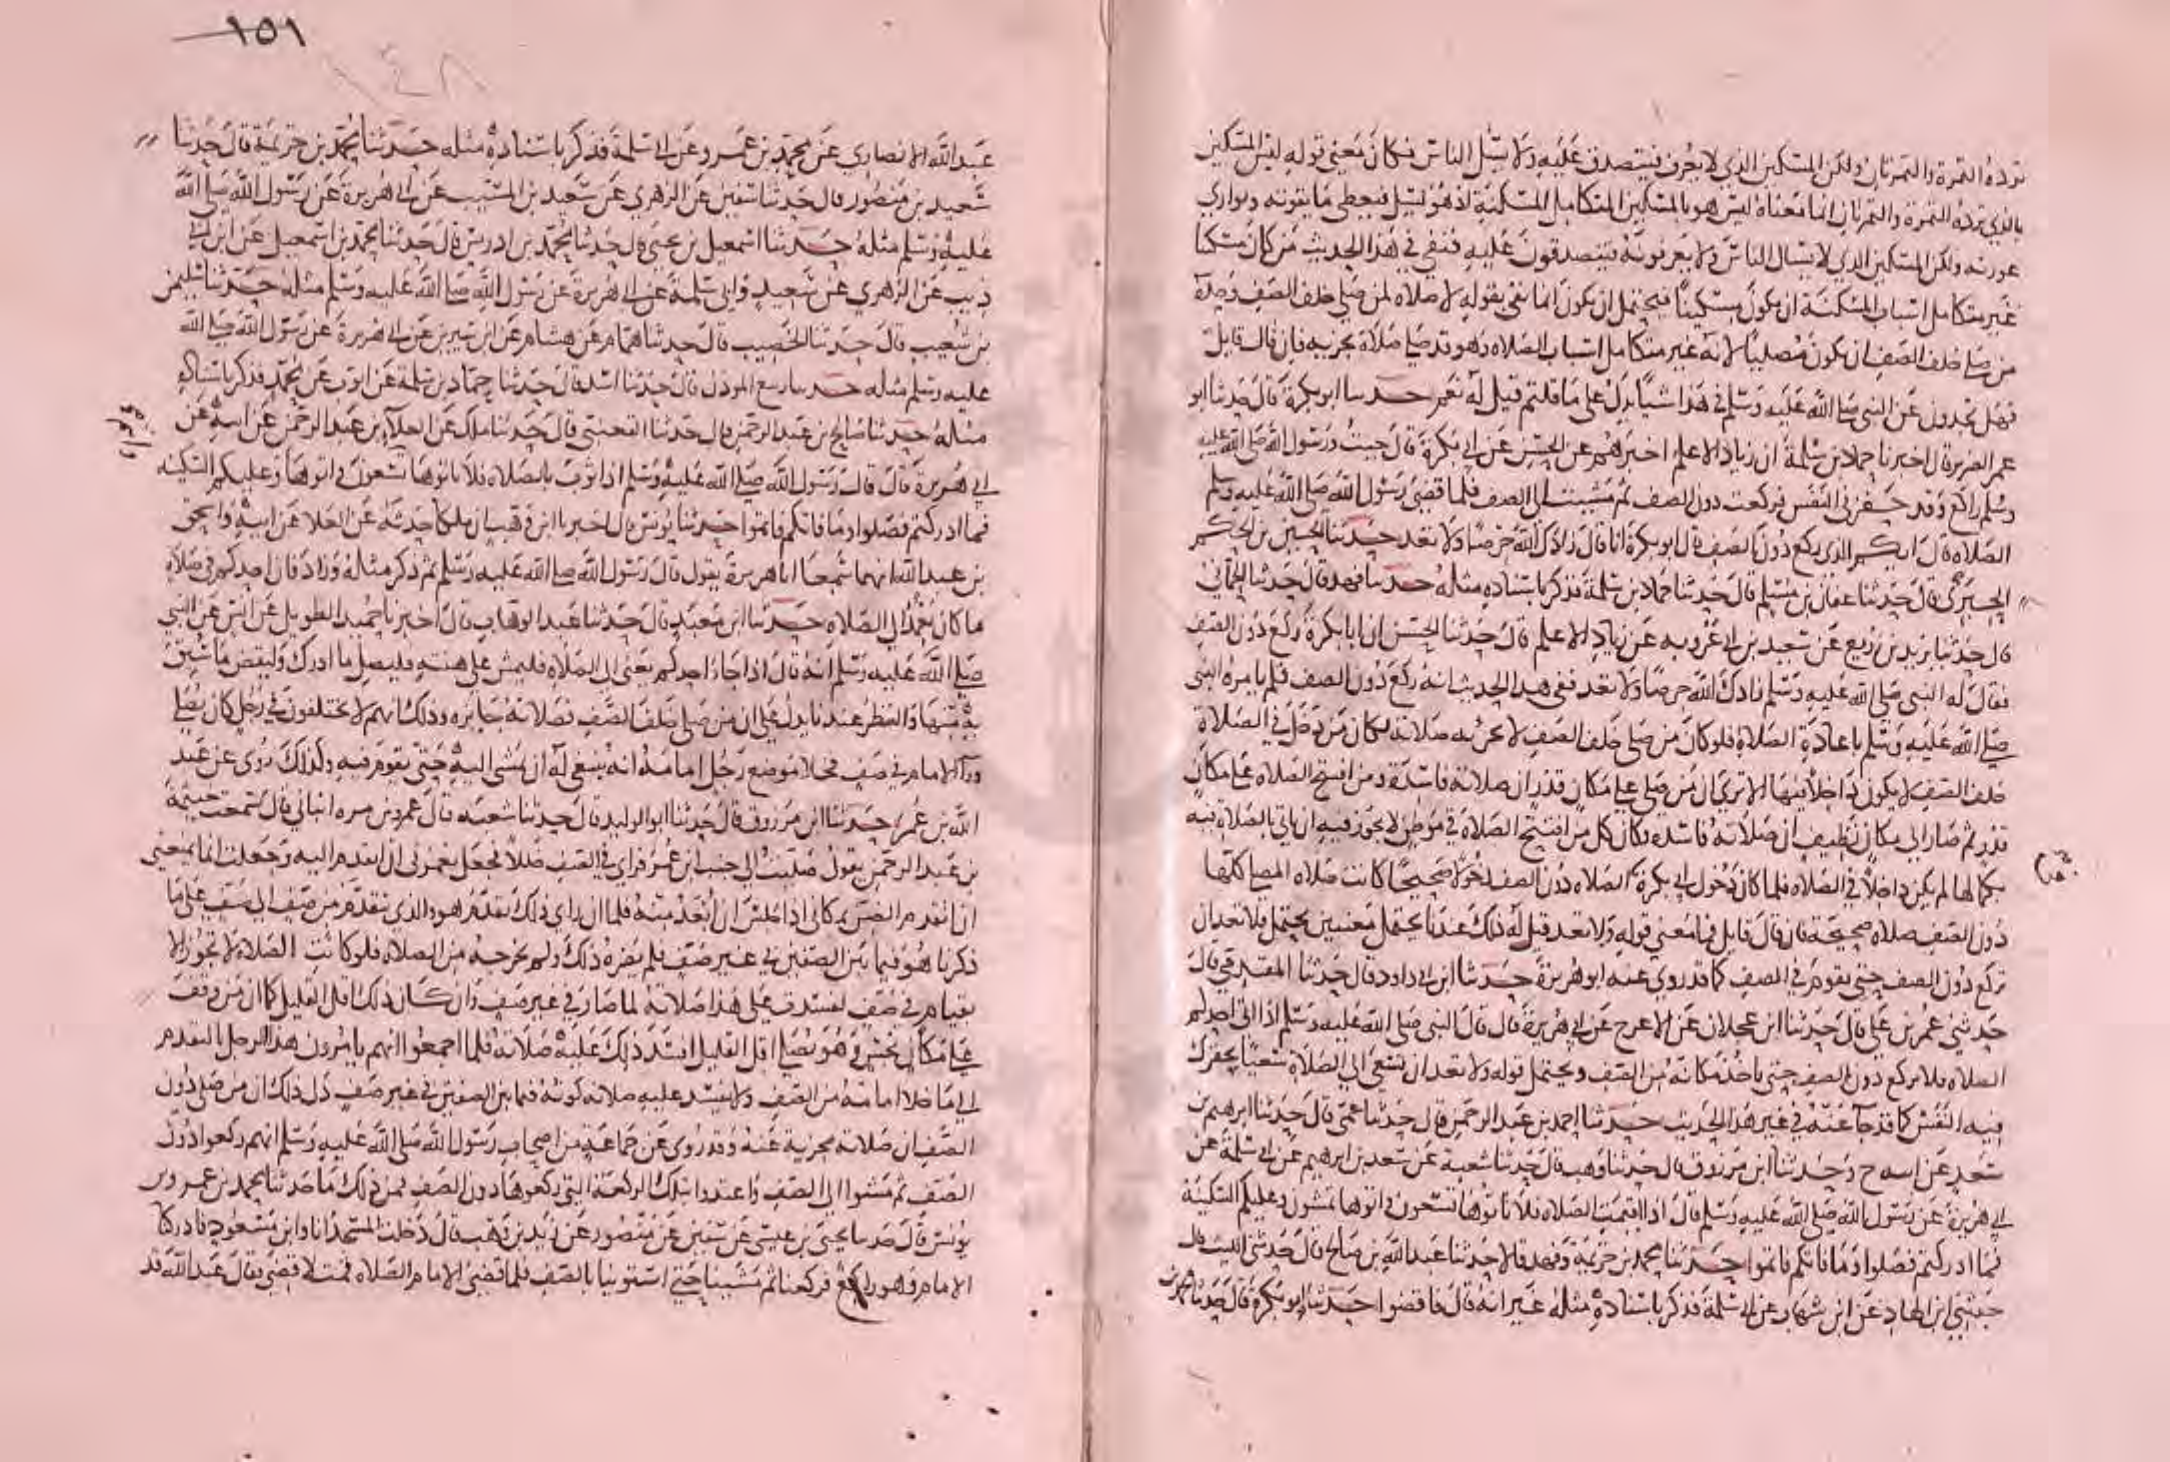 ترده التمرة والتمرتان ولكن المسكين الذي لا يعرف فيتصدق عليه ولا يسل الناس فكان معنى قوله ليس المسكين
بالذي ترده التمرة والتمرتان انما معناه ليس هو بالمسكين المتكامل المسكنة اذ هو يسل فيعطى ما يقوته ويواري
عورته ولكن المسكين الذي لا يسال الناس ولا يعرفونه فيتصدقون عليه فنفى في هذا الحديث من كان مسكنا
غير متكامل اسباب المسكنة ان يكون مسكينا فيحتمل ان يكون انما نفى بقوله لا صلاة لمن صلى خلف الصف وحده
من صلى خلف الصف ان يكون مصليا لانه غير متكامل اسباب الصلاه وهو قد صلى صلاة تجزيه فان قال قايل
فهل تجدون عن النبي صلى الله عليه وسلم في هذا شيا يدل على ما قلتم قيل له نعم حدثنا ابو بكرة قال حدثنا ابو
عمر الضرير قال اخبرنا حماد بن سلمة ان زياد الاعلم اخبرهم عن الحسن عن ابي بكرة قال جيت ورسول الله صلى الله عليه
وسلم راكع وقد حفزني النفس فركعت دون الصف ثم مشيت الى الصف فلما قضى رسول الله صلى الله عليه وسلم
الصلاة قال ايكم الذي ركع دون الصف قال ابو بكرة انا قال زادك الله حرصا ولا تعد حدثنا الحسين بن الحكم
الحبري قال حدثنا عفان بن مسلم قال حدثنا حماد بن سلمة فذكر باسناده مثله حدثنا فهد قال حدثنا الحماني
قال حدثنا يزيد بن زريع عن سعيد بن ابي عروبه عن زياد الاعلم قال حدثنا الحسن ان ابا بكرة ركع دون الصف
فقال له النبي صلى الله عليه وسلم زادك الله حرصا ولا تعد ففي هذا الحديث انه ركع دون الصف فلم يامره النبي
صلى الله عليه وسلم باعادة الصلاة فلو كان من صلى خلف الصف لا تجزئه صلاته لكان من دخل في الصلاة
خلف الصف لا يكون داخلا فيها الا ترى ان من صلى على مكان قذر ان صلاته فاسدة ومن افتتح الصلاه على مكان
قذر ثم صار الى مكان نظيف ان صلاته فاسده فكان كل من افتتح الصلاة في موطن لا يجوز فيه ان ياتي بالصلاة فيه
بكمالها لم يكن داخلا في الصلاه فلما كان دخول ابي بكرة الصلاه دون الصف دخولا صحيحا كانت صلاه المصلي كلها
دون الصف صلاه صحيحة فان قال قايل فما معنى قوله ولا تعد قيل له ذلك عندنا يحتمل معنيين يحتمل ولا تعد ان
تركع دون الصف حتى تقوم في الصف كما قد روي عنه ابو هريرة حدثنا ابن ابي داود قال حدثنا المقدمي قال
حدثني عمر بن علي قال حدثنا ابن عجلان عن الاعرج عن ابي هريرة قال قال النبي صلى الله عليه وسلم اذا اتى احدكم
الصلاه فلا يركع دون الصف حتى ياخذ مكانه من الصف ويحتمل قوله ولا تعد ان تسعى الى الصلاة سعيا يحفزك
فيه النفس كما قد جآ عنه في غير هذا الحديث حدثنا احمد بن عبد الرحمن قال حدثنا عمي قال حدثنا ابرهيم بن
سعد عن ابيه ح وحدثنا ابن مرزوق قال حدثنا وهب قال حدثنا شعبة عن سعد بن ابرهيم عن ابي سلمة عن
ابي هريرة عن رسول الله صلى الله عليه وسلم قال اذا اقيمت الصلاه فلا تاتوها تسعون واتوها تمشون وعليكم السكينة
فما ادركتم فصلوا وما فاتكم فاتموا حدثنا محمد بن خزيمة وفهد قالا حدثنا عبد الله بن صالح قال حدثني الليث قال
حدثني ابن الهاد عن ابن شهاب عن ابي سلمة فذكر باسناده مثله غير انه قال فاقضوا حدثنا ابو بكرة قال حدثنا محمد بن
١٥١
١٤٨
عبد الله الانصاري عن محمد بن عمرو عن ابي سلمة فذكر باسناده مثله حدثنا محمد بن خزيمة قال حدثنا
سعيد بن منصور قال حدثنا سفين عن الزهري عن سعيد بن المسيب عن ابي هريرة عن رسول الله صلى الله
عليه وسلم مثله حدثنا اسمعيل بن يحيى قال حدثنا محمد بن ادريس قال حدثنا محمد بن اسمعيل عن ابن ابي
ذيب عن الزهري عن سعيد وابي سلمة عن ابي هريرة عن رسول الله صلى الله عليه وسلم مثله حدثنا سليمن
بن شعيب قال حدثنا الخصيب قال حدثنا همام عن هشام عن ابن سيرين عن ابي هريرة عن رسول الله صلى الله
عليه وسلم مثله حدثنا ربيع الموذن قال حدثنا اسد قال حدثنا حماد بن سلمة عن ايوب عن محمد فذكر باسناده
مثله حدثنا صالح بن عبد الرحمن قال حدثنا القعنبي قال حدثنا ملك عن العلآ بن عبد الرحمن عن ابيه عن
ابي هريرة قال قال رسول الله صلى الله عليه وسلم اذا ثوب بالصلاه فلا تاتوها تسعون واتوها وعليكم السكينه
فما ادركتم فصلوا وما فاتكم فاتموا حدثنا يونس قال اخبرنا ابن وهب ان ملكا حدثه عن العلا عن ابيه واسحق
بن عبد الله انهما سمعا ابا هريرة يقول قال رسول الله صلى الله عليه وسلم ثم ذكر مثله وزاد فان احدكم في صلاة
ما كان يعمد الى الصلاه حدثنا ابن معبد قال حدثنا عبد الوهاب قال اخبرنا حميد الطويل عن انس عن النبي
صلى الله عليه وسلم انه قال اذا جاء احدكم يعني الى الصلاة فليمش على هينته فليصل ما ادرك وليقض ما سبق
به منها والنظر عندنا يدل على ان من صلى خلف الصف فصلاته جايزه وذلك انهم لا يختلفون في رجل كان يصلي
ورآ الامام في صف فخلا موضع رجل امامه انه ينبغي له ان يمشي اليه حتى يقوم فيه وكذلك روي عن عبد
الله بن عمر حدثنا ابن مرزوق قال حدثنا ابو الوليد قال حدثنا شعبه قال عمرو بن مره انباني قال سمعت خيثمة
بن عبد الرحمن يقول صليت الى جنب ابن عمر فراى في الصف خللا فجعل يغمزني ان اتقدم اليه وجعلت انما يمنعني
ان اتقدم الضن بمكاني اذا جلس ان ابعد منه فلما ان راى ذلك تقدم هو والذي يتقدم من صف الى صف على ما
ذكرنا هو فيما بين الصفين في غير صف فلم يضره ذلك ولم يخرجه من الصلاه فلو كانت الصلاة لا تجوز الا
بقيام في صف لفسدت على هذا صلاته لما صار في غير صف وان كان ذلك اقل القليل كما ان من وقف
على مكان نجس وهو يصلي اقل القليل افسد ذلك عليه صلاته فلما اجمعوا انهم يامرون هذا الرجل بالتقدم
الى ما خلا امامه من الصف ولا يفسد عليه صلاته كونه فيما بين الصفين في غير صف دل ذلك ان من صلى دون
الصف ان صلاته مجزية عنه وقد روي عن جماعة من اصحاب رسول الله صلى الله عليه وسلم انهم ركعوا دون
الصف ثم مشوا الى الصف واعتدوا بتلك الركعة التي ركعوها دون الصف فمن ذلك ما حدثنا محمد بن عمرو بن
يونس قال حدثنا يحيى بن عيسى عن سفين عن منصور عن زيد بن وهب قال دخلت المسجد انا وابن مسعود فادركنا
الامام وهو راكع فركعنا ثم مشينا حتى استوينا بالصف فلما قضى الامام الصلاه قمت لاقضي فقال عبد الله قد